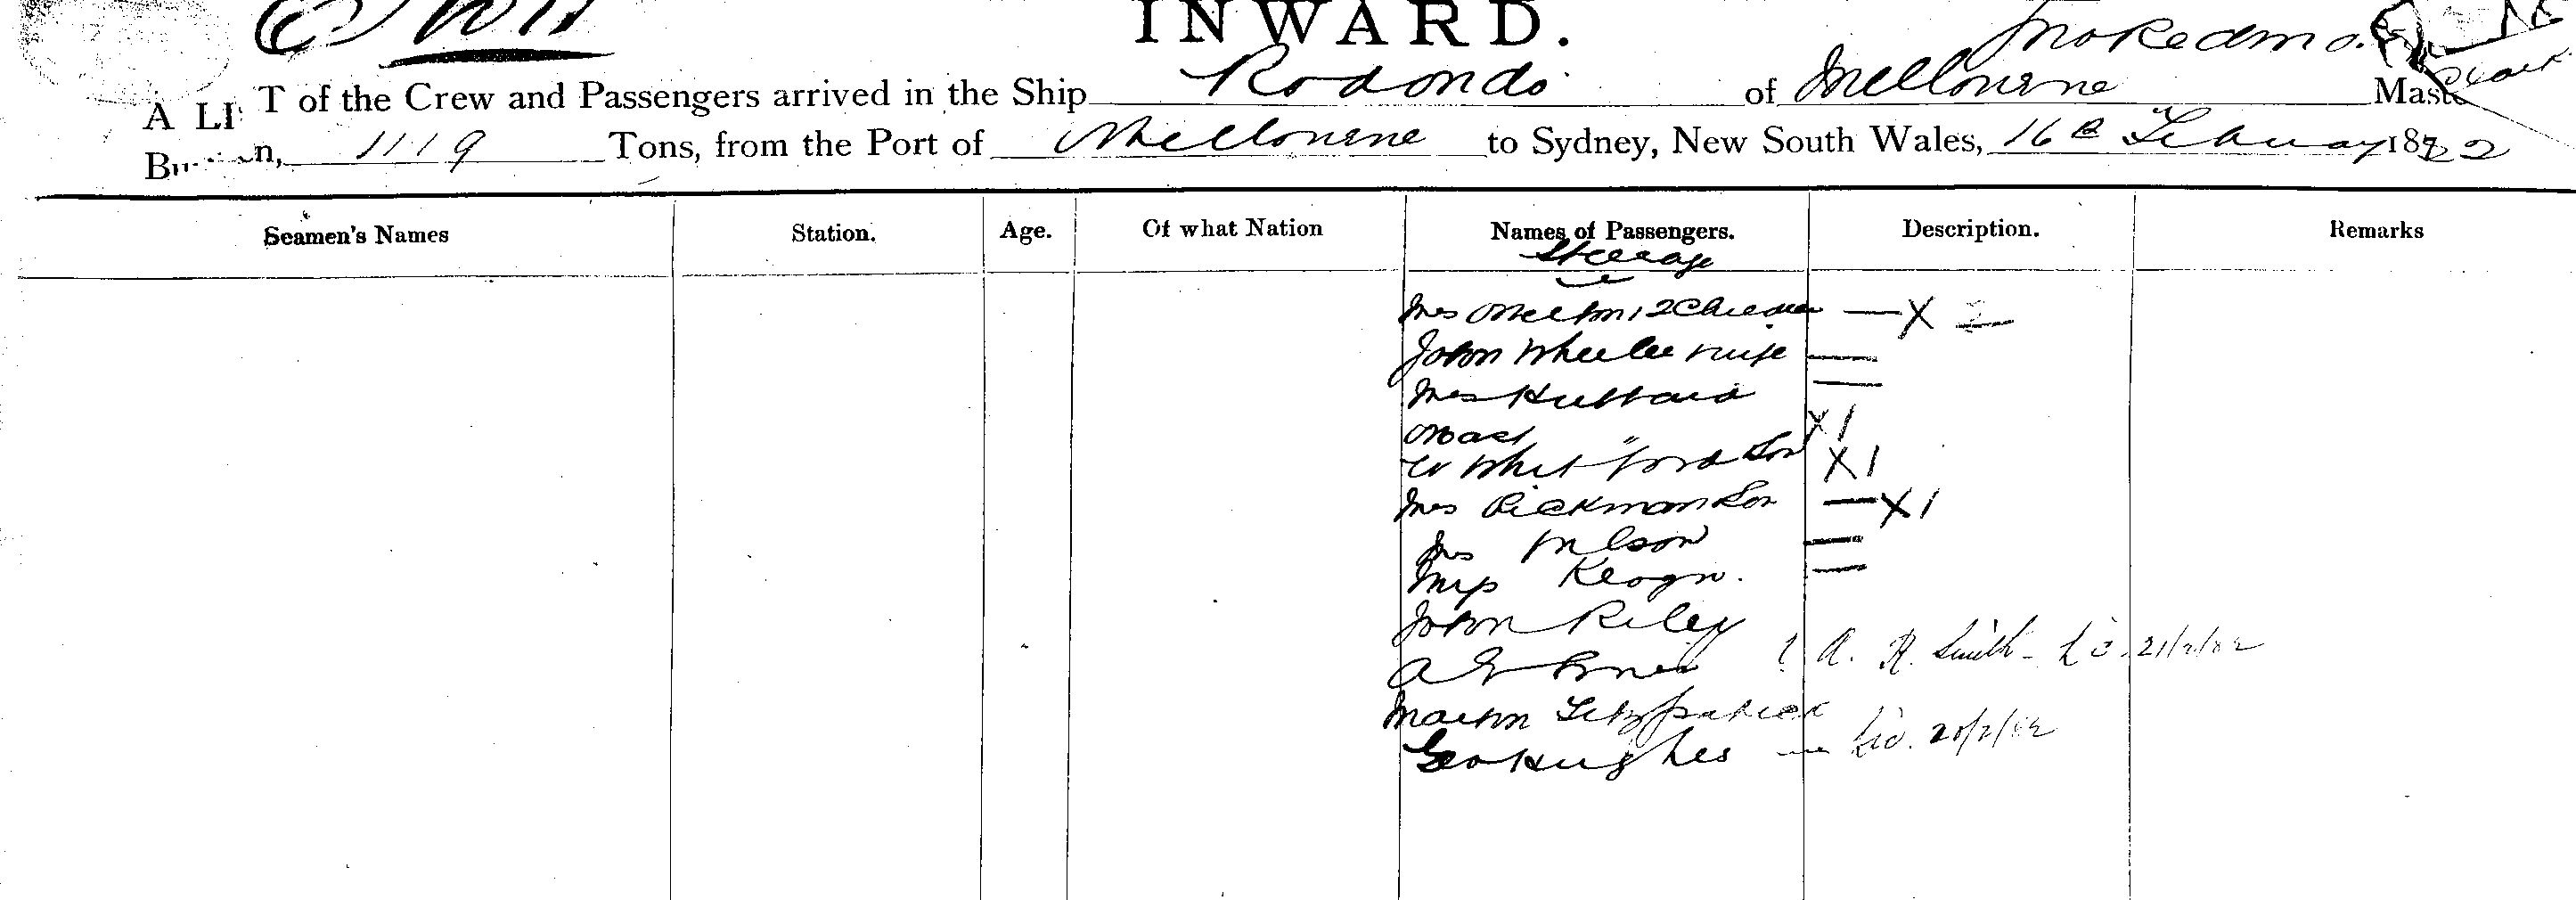 INWARD.
A LI T of the Crew and Passengers arrived in the Ship Rodondo of Melbourne Mast
B n, 1119 Tons, from the Port of Melbourne to Sydney, New South Wales, 16th February 1882
Seamen's Names Station. Age. Of what Nation Names of Passengers. Description. Remarks
Steerage
Mrs 2 Children — X 2
John Wheeler wife —
Mrs Hubbard —
Mast " X 1
W Whitford Son X 1
Mrs Rickman Son — X 1
Mrs Wilson —
Miss Keogh. —
John Riley
A G A. R. Smith - 21/2/82
Martin Fitzpatrick
Geo Hughes — 20/2/82